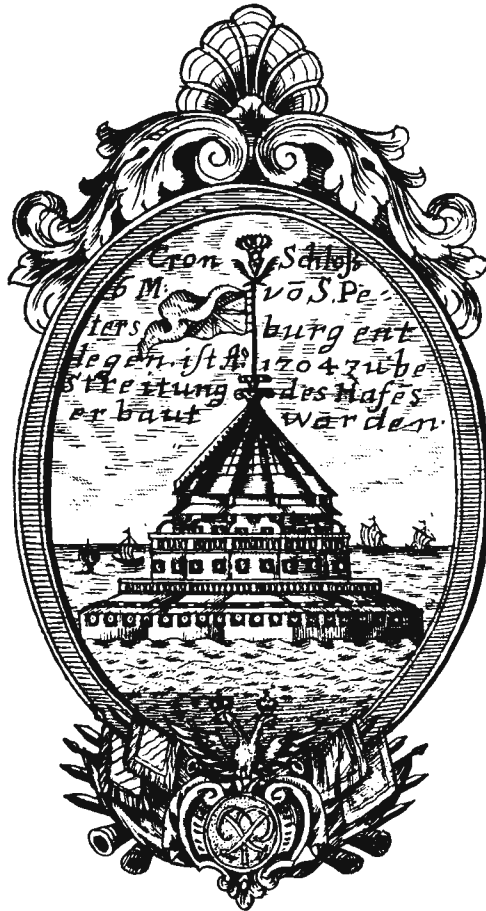 Cron Schloß
6 M. vō S. Pe-
ters burg ent
legen. ist Aō 1704 zu be
Streitung des Hafēs
erbaut warden.